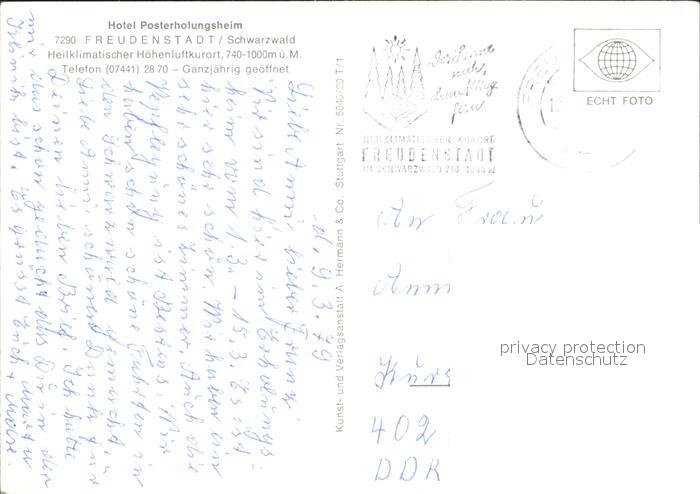 Hotel Posterholungsheim
7290 FREUDENSTADT / Schwarzwald
Heilklimatischer Höhenluftkurort, 740-1000m ü. M.
Telefon (07441) 28 70 – Ganzjährig geöffnet
Der Sonne
nah,
dem Alltag
fern
HEILKLIMATISCHER KURORT
FREUDENSTADT
IM SCHWARZWALD 740 - 1000 M
ECHT FOTO
Kunst- und Verlagsanstalt A. Hermann & Co. Stuttgart Nr. 5040/20 T/1
d. 9.3.79
Liebe Anni, lieber Franz!
Wir sind hier im Erholungs-
heim vom 1.3. – 15.3. Es ist
hier sehr schön. Wir haben ein
sehr schönes Zimmer. Auch die
Verpflegung ist bestens. Wir
haben schon schöne Fahrten in
den Schwarzwald gemacht.
Liebe Anni, schönen Dank für
Deinen lieben Brief. Ich habe
mir schon gedacht, das Du in der
Es grüsst Euch
An Frau
Anni
Kurs
402
DDR
privacy protection
Datenschutz